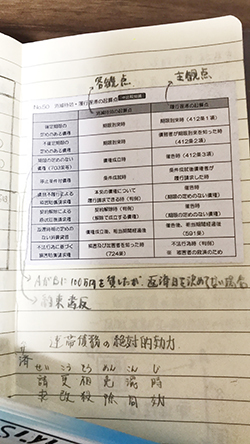 客観点 主観点
No.50 消滅時効・履行遅滞の起算点
消滅時効の起算点 履行遅滞の起算点
確定期限の定めのある債権 期限到来時 期限到来時(412条1項)
不確定期限の定めのある債権 期限到来時 債務者が期限到来を知った時(412条2項)
期限の定めのない債権 債権成立時 催告時(412条3項)
停止条件付債権 条件成就時 条件成就後債権者が履行請求した時
債務不履行による損害賠償請求権 本来の債権について履行請求できる時(判例) 催告時(期限の定めのない債権)
契約解除による原状回復請求権 契約解除時(判例)(解除で成立する債権) 催告時(期限の定めのない債権)
返還時期の定めのない消費貸借 債権成立後、相当期間経過後 催告後、相当期間経過後(591条)
不法行為に基づく損害賠償請求権 損害及び加害者を知った時(724条) 不法行為時(判例)
※ 被害者の救済のため
AがBに100万円を貸したが、返済日を決めてない場合
約束違反
連帯債務の絶対的効力
せい こう そう めん こん じ
請 更 相 免 混 時
求 改 殺 除 同 効